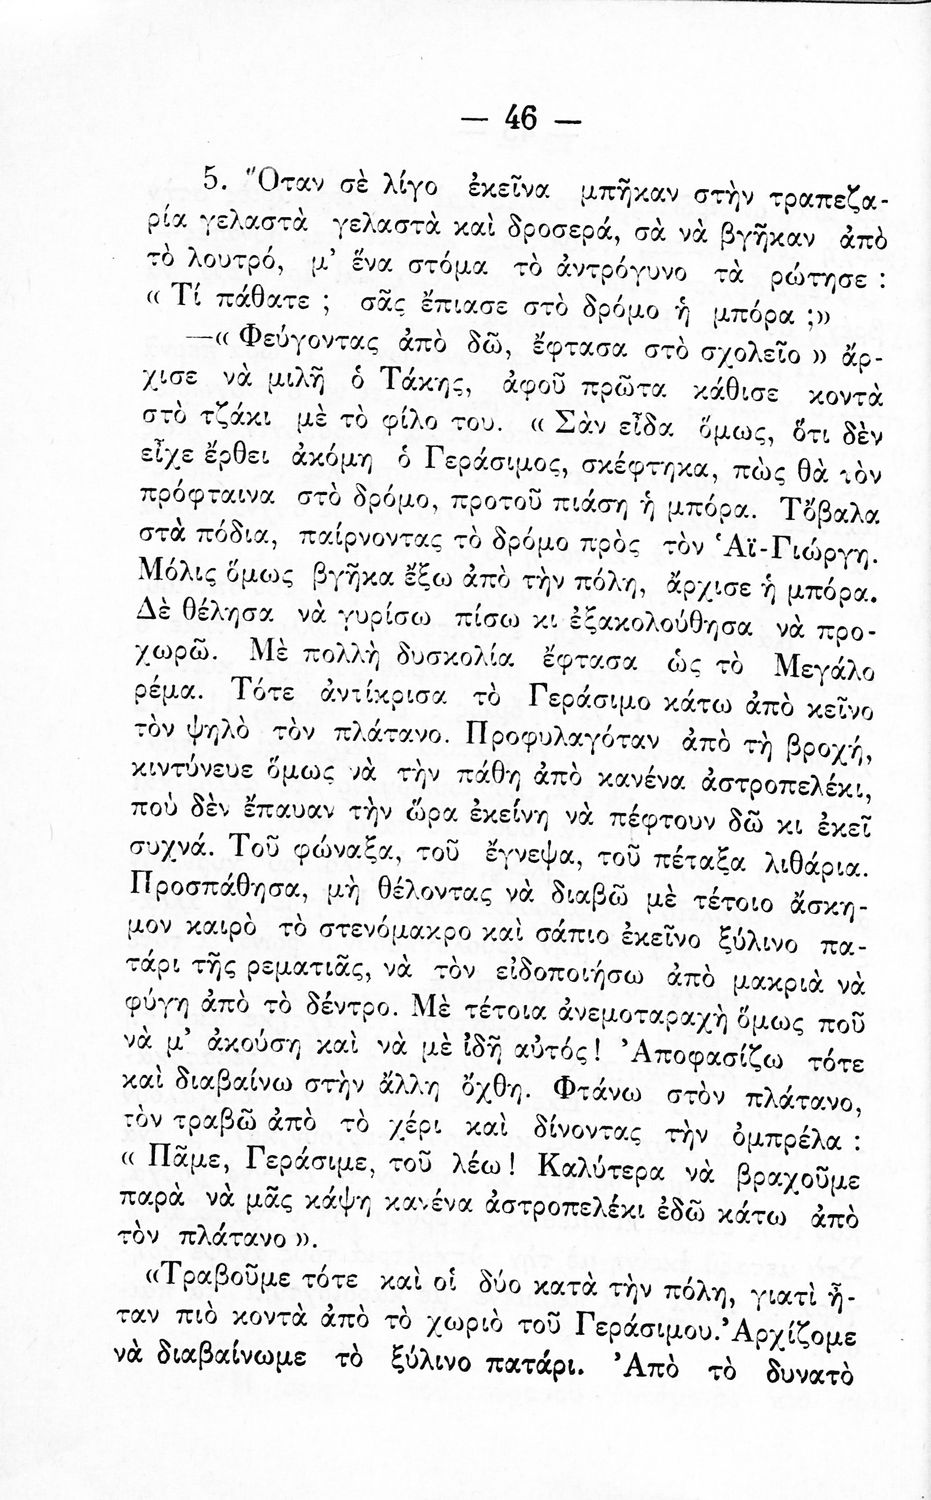 — 46 —
5. Ὅταν σὲ λίγο ἐκεῖνα μπῆκαν στὴν τραπεζα-
ρία γελαστὰ γελαστὰ καὶ δροσερά, σὰ νὰ βγῆκαν ἀπὸ
τὸ λουτρό, μ’ ἕνα στόμα τὸ ἀντρόγυνο τὰ ρώτησε :
« Τί πάθατε ; σᾶς ἔπιασε στὸ δρόμο ἡ μπόρα ;»
—« Φεύγοντας ἀπὸ δῶ, ἔφτασα στὸ σχολεῖο » ἄρ-
χισε νὰ μιλῆ ὁ Τάκης, ἀφοῦ πρῶτα κάθισε κοντὰ
στὸ τζάκι μὲ τὸ φίλο του. « Σὰν εἶδα ὅμως, ὅτι δὲν
εἶχε ἔρθει ἀκόμη ὁ Γεράσιμος, σκέφτηκα, πὼς θὰ τὸν
πρόφταινα στὸ δρόμο, προτοῦ πιάση ἡ μπόρα. Τὄβαλα
στὰ πόδια, παίρνοντας τὸ δρόμο πρὸς τὸν Ἁϊ-Γιώργη.
Μόλις ὅμως βγῆκα ἔξω ἀπὸ τὴν πόλη, ἄρχισε ἡ μπόρα.
Δὲ θέλησα νὰ γυρίσω πίσω κι ἐξακολούθησα νὰ προ-
χωρῶ. Μὲ πολλὴ δυσκολία ἔφτασα ὡς τὸ Μεγάλο
ρέμα. Τότε ἀντίκρισα τὸ Γεράσιμο κάτω ἀπὸ κεῖνο
τὸν ψηλὸ τὸν πλάτανο. Προφυλαγόταν ἀπὸ τὴ βροχή,
κιντύνευε ὅμως νὰ τὴν πάθη ἀπὸ κανένα ἀστροπελέκι,
ποὺ δὲν ἔπαυαν τὴν ὥρα ἐκείνη νὰ πέφτουν δῶ κι ἐκεῖ
συχνά. Τοῦ φώναξα, τοῦ ἔγνεψα, τοῦ πέταξα λιθάρια.
Προσπάθησα, μὴ θέλοντας νὰ διαβῶ μὲ τέτοιο ἄσκη-
μον καιρὸ τὸ στενόμακρο καὶ σάπιο ἐκεῖνο ξύλινο πα-
τάρι τῆς ρεματιᾶς, νὰ τὸν εἰδοποιήσω ἀπὸ μακριὰ νὰ
φύγη ἀπὸ τὸ δέντρο. Μὲ τέτοια ἀνεμοταραχὴ ὅμως ποῦ
νὰ μ’ ἀκούση καὶ νὰ μὲ ἰδῆ αὐτός! Ἀποφασίζω τότε
καὶ διαβαίνω στὴν ἄλλη ὄχθη. Φτάνω στὸν πλάτανο,
τὸν τραβῶ ἀπὸ τὸ χέρι καὶ δίνοντας τὴν ὀμπρέλα :
« Πᾶμε, Γεράσιμε, τοῦ λέω! Καλύτερα νὰ βραχοῦμε
παρὰ νὰ μᾶς κάψη κανένα ἀστροπελέκι ἐδῶ κάτω ἀπὸ
τὸν πλάτανο ».
«Τραβοῦμε τότε καὶ οἱ δύο κατὰ τὴν πόλη, γιατὶ ἦ-
ταν πιὸ κοντὰ ἀπὸ τὸ χωριὸ τοῦ Γεράσιμου. Ἀρχίζομε
νὰ διαβαίνωμε τὸ ξύλινο πατάρι. Ἀπὸ τὸ δυνατὸ